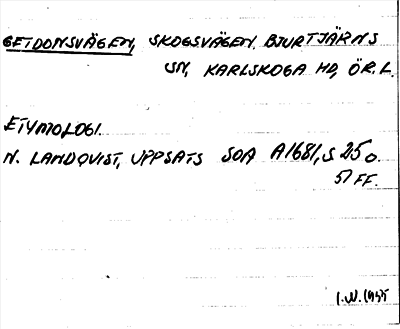 GETDONSVÄGEN, SKOGSVÄGEN. BJURTJÄRNS
SN, KARLSKOGA HD, ÖR.L.
ETYMOLOGI.
N. LANDQVIST, UPPSATS SOA A1681, S 25 o.
51 FF.
I.W. 1955